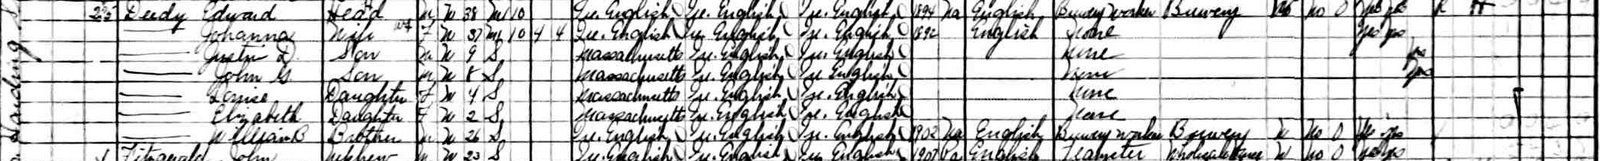 Harding 295 Deedy Edward Head M W 38 M1 10 Ire. English Ire. English Ire. English 1894 Na English Brewery Worker Brewery W no 0 yes yes R H
Johanna Wife F W 37 M1 10 4 4 Ire. English Ire. English Ire. English 1892 English None yes yes
Justin D Son M W 9 S Massachusetts Ire. English Ire. English None
John G Son M W 8 S Massachusetts Ire. English Ire. English None yes
Louise Daughter F W 4 S Massachusetts Ire. English Ire. English None
Elizabeth Daughter F W 2 S Massachusetts Ire. English Ire. English None
William B Brother M W 26 S Ire. English Ire. English Ire. English 1902 Na English Brewery Worker Brewery W no 0 yes yes
Fitzgerald John Nephew M W 23 S Ire. English Ire. English Ire. English Pa English Teamster W no 0 yes yes